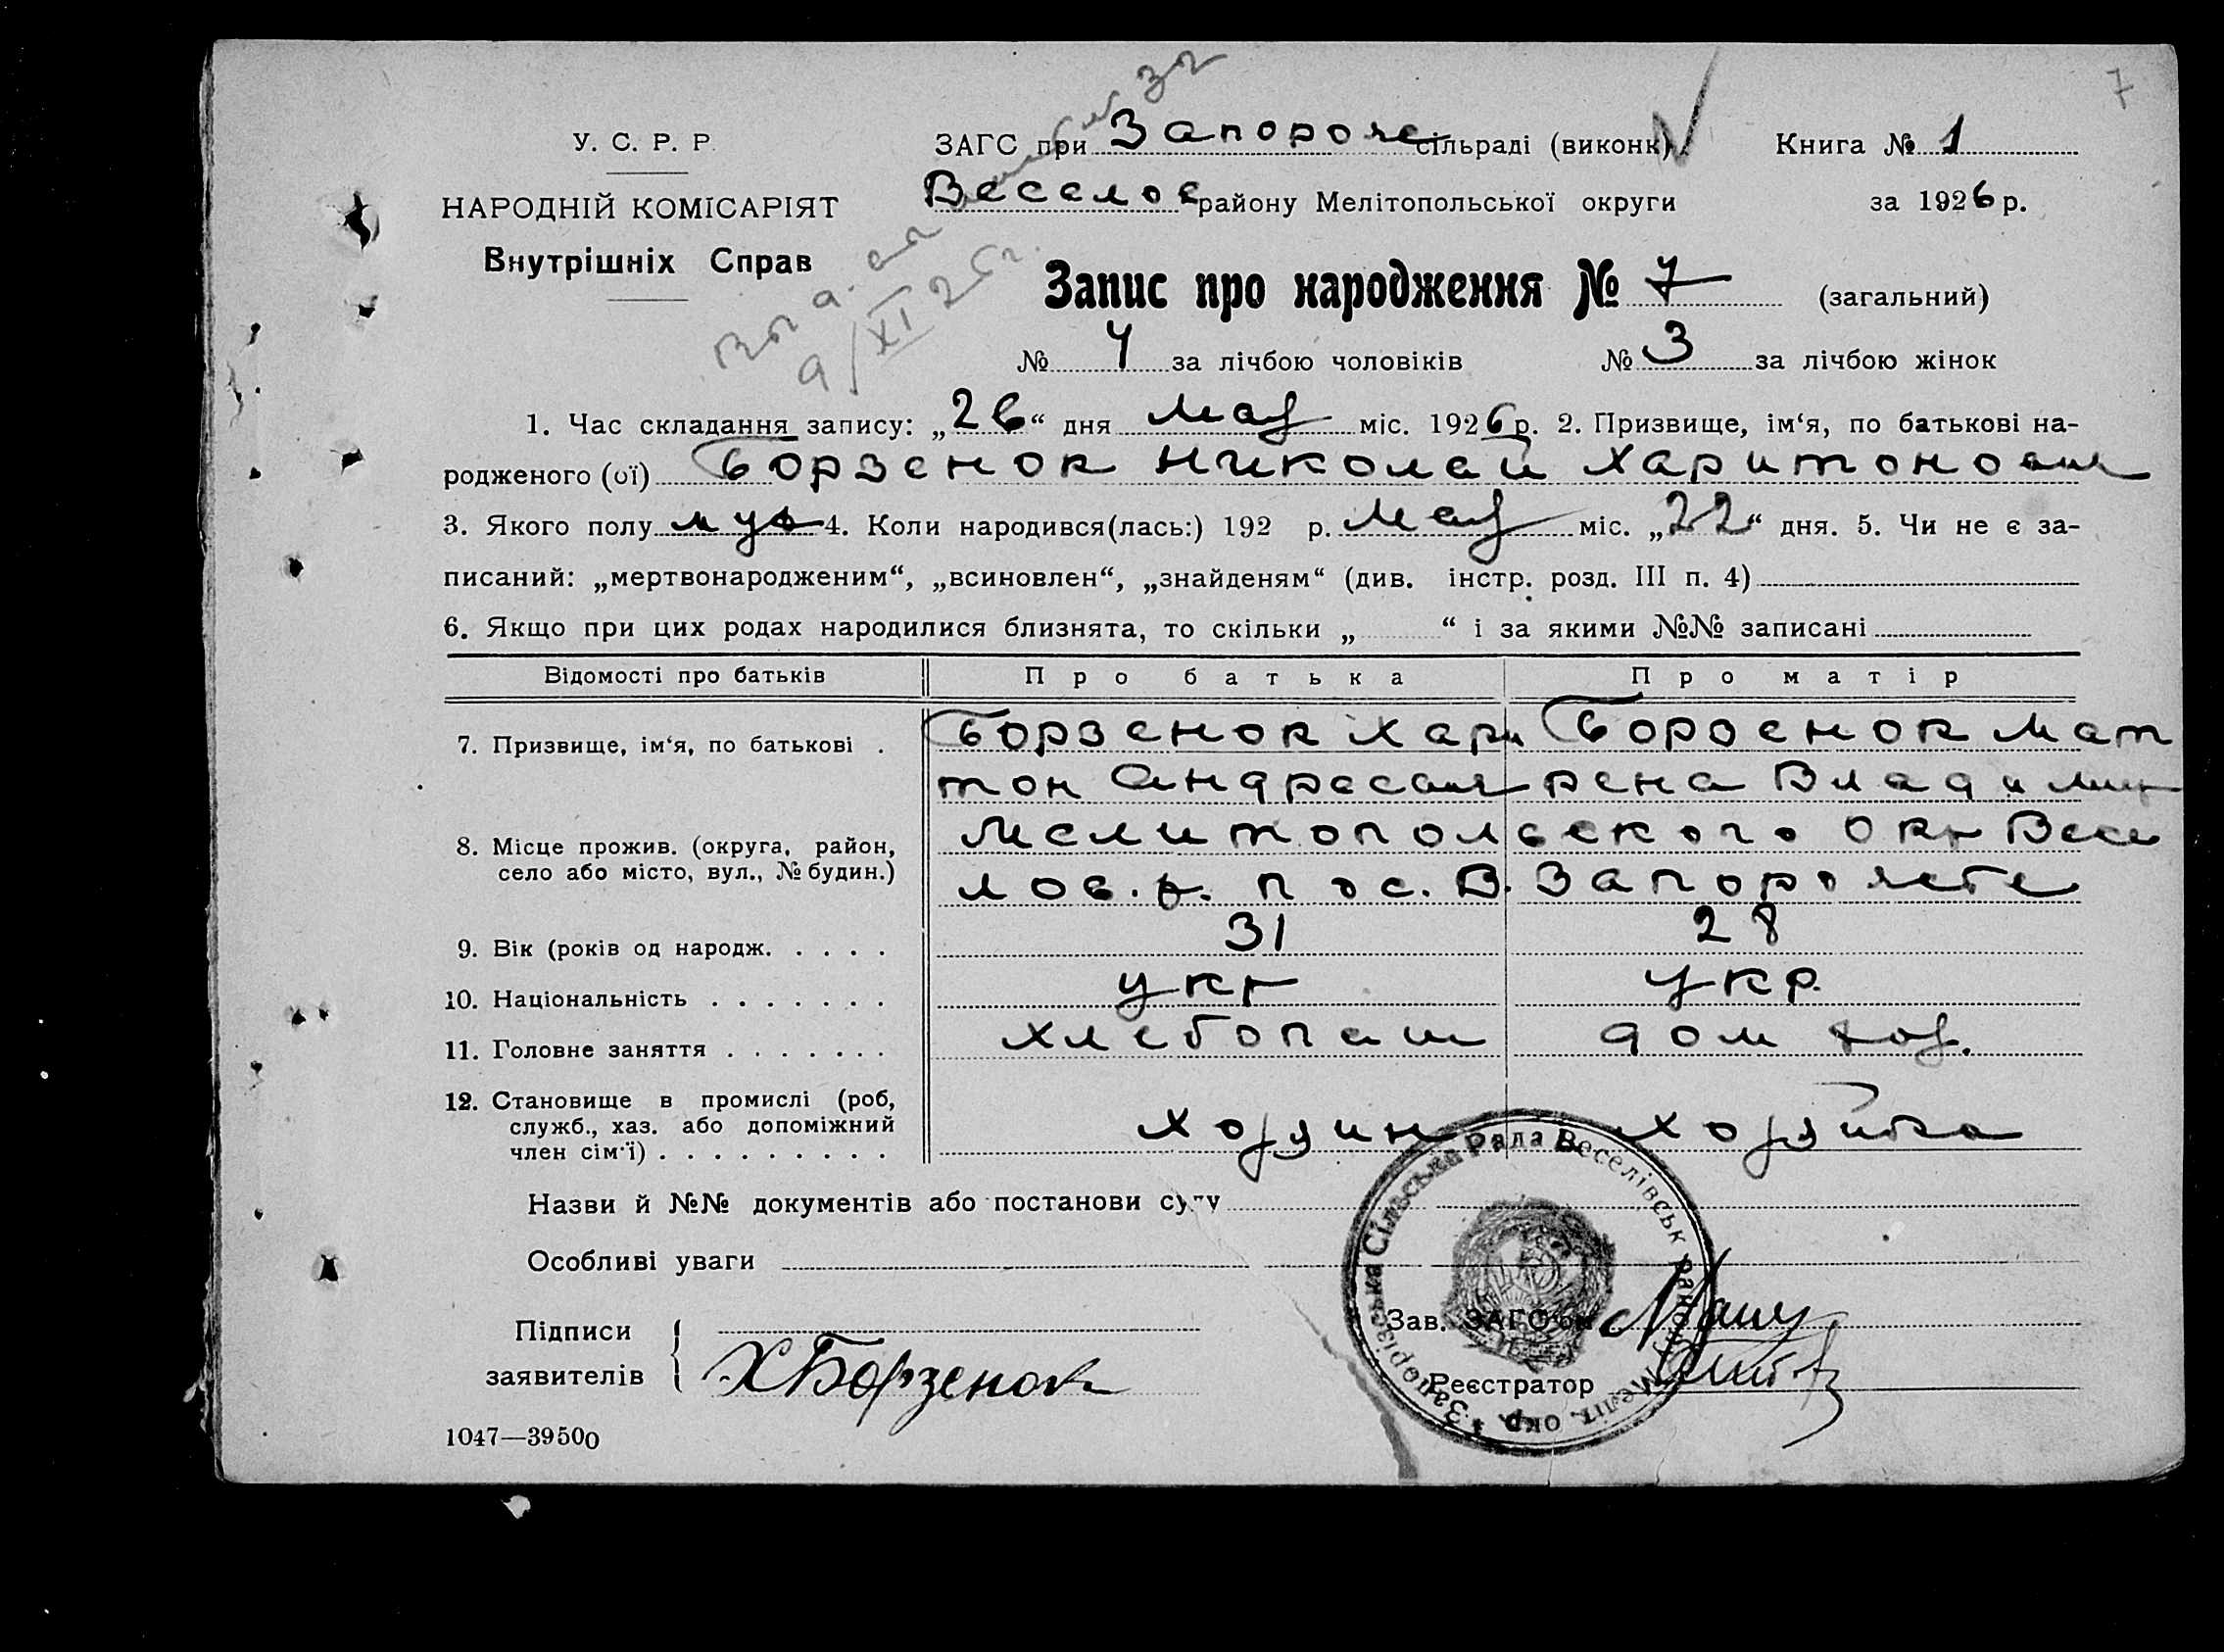 7
У. С. Р. Р.
ЗАГС при Запорож сільраді (виконк)
Книга № 1
НАРОДНІЙ КОМІСАРІЯТ
Веселов району Мелітопольської округи
за 1926 р.
Внутрішніх Справ
9/XI 26 г.
Запис про народження № 7 (загальний)
№ 4 за лічбою чоловіків № 3 за лічбою жінок
1. Час складання запису: „26“ дня мая міс. 1926 р. 2. Призвище, ім‘я, по батькові на-
родженого (ої) Борзенок Николай Харитонович
3. Якого полу муж 4. Коли народився(лась:) 192 р. мая міс. „22“ дня. 5. Чи не є за-
писаний: „мертвонародженим“, „всиновлен“, „знайденям“ (див. інстр. розд. III п. 4)
6. Якщо при цих родах народилися близнята, то скільки „ “ і за якими №№ записані
Відомості про батьків
Про батька
Про матір
7. Призвище, ім‘я, по батькові .
Борзенок Хари
тон Андреевич
Борзенок Мат
рена Владимир
8. Місце прожив. (округа, район,
село або місто, вул., № будин.)
Мелитопольского Окр Весе
лов. р. пос. В. Запорожье
9. Вік (років од народж. . . . .
31
28
10. Національність . . . . . . .
укр
укр.
11. Головне заняття . . . . . . .
хлебопаш
дом хоз.
12. Становище в промислі (роб,
служб., хаз. або допоміжний
член сім‘ї) . . . . . . . . .
хозяин
хозяйка
Назви й №№ документів або постанови суду
Особливі уваги
Підписи
заявителів
Х Борзенок
Зав. ЗАГС‘ом
Реєстратор
Запорізська Сільська Рада Веселівськ району Меліт. окр.
1047—39500